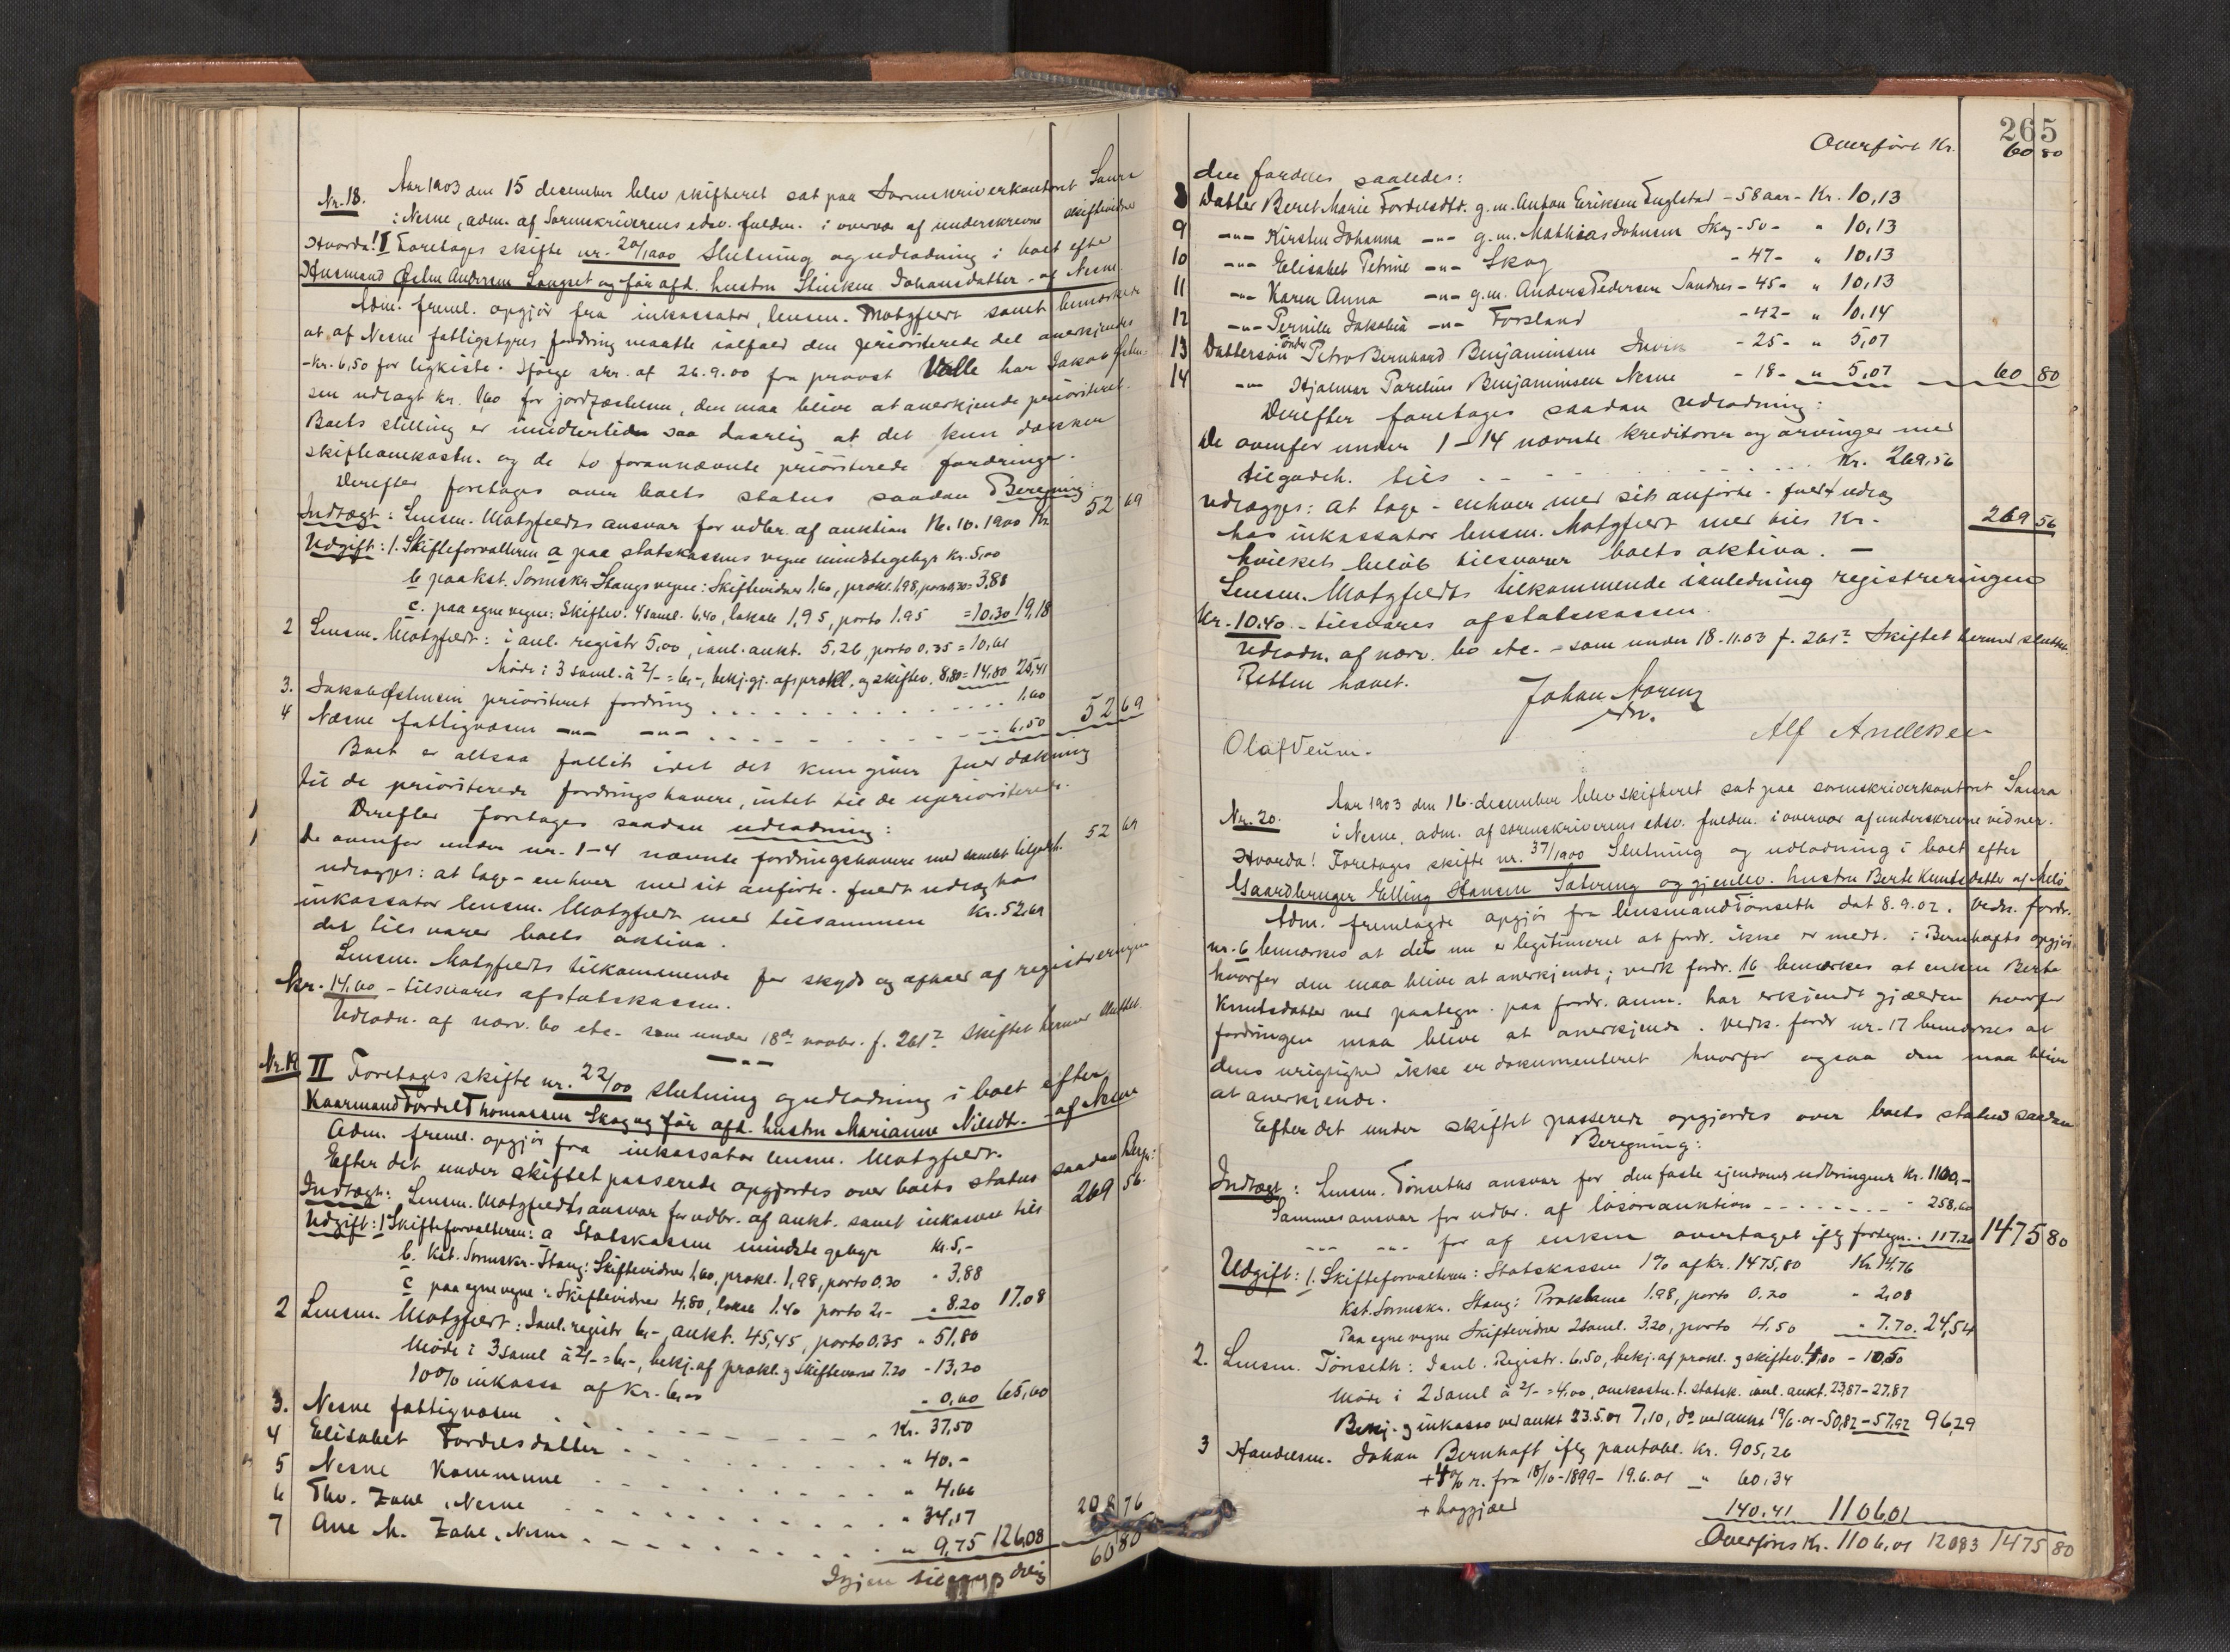 Nr. 18. Aar 1903 den 15 december blev skifteret sat paa Sorenskriverkontoret Saura
i Nesne, adm. af Sorenskriverens edsv. fuldm. i overvær af underskrevne skiftevidner
Hvorda! I Foretages skifte nr. 20/1900 Slutning og udlodning i boet efter
Husmand Østen Andersen Langset og før afd. hustru Johansdatter - af Nesne.
Adm. freml. opgjör fra inkassator, lensm. Motzfeldt samt bemærkede
at af Nesne fattigstyres fordring maatte ialfald den prioriterede del anerkjendes
- kr. 6,50 for ligkiste. Ifölge skr. af 26.9.00 fra provst Valle har Jakob Østen-
sen udlagt kr. 1,60 for jordfæstelsen, den maa blive at anerkjende prioriteret.
Boets stilling er imidlertid saa daarlig at det kun dækker
skifteomkostn. og de to forannævnte prioriterede fordringer.
Derefter foretages over boets status saadan Beregning:
Indtægt: Lensm. Motzfeldts ansvar for udbr. af auktion 16.10.1900 Kr. 52 69
Udgift: 1. Skifteforvalteren a paa statskassens vegne mindstegebyr Kr. 5,00
b paa kst. Sorenskr. Stangs vegne: Skiftevidner 1,60, prokl. 1,98, porto 0,30 = 3,88
c. paa egne vegne: Skiftev. 4 saml. 6.40, lokale 1,95, porto 1.95 = 10.30 19,18
2 Lensm. Motzfeldt: i anl. registr 5,00, i anl. aukt. 5,26, porto 0.35 = 10,61
Möde i 3 saml. à 2/- = 6,-, bekj.gj. af prokl. og skiftev. 8,80 = 14,80 25,41
3. Jakob Østensen prioriteret fordring . . . . 1,60
4 Næsne fattigvæsen -"- -"- . . . . 6.50 52 69
Boet er altsaa fallit idet det kun giver fuld dækning
til de prioriterede fordringshavere, intet til de uprioriterede.
Derefter foretages saadan udlodning:
De ovenfor under nr. 1-4 nævnte fordringshavere med samlet tilgodeh. 52 69
udlægges: at tage - enhver med sit anförte - fuldt udlæg hos
inkassator lensm. Motzfeldt med tilsammen Kr. 52,69
der tilsvarer boets aktiva.
Lensm. Motzfeldts tilkommende for skyds og afhold af registreringen
kr. 14,60 - tilsvares af statskassen.
Udlodn. af nærv. bo etc. som under 18de novbr. f. 261? Skiftet hermed sluttet.
Nr. 19 II Foretages skifte nr. 22/00 slutning og udlodning i boet efter
Kaarmand Fordel Thomassen Skog og før afd. hustru Marianne Nilsdt. - af Nesne
Adm. freml. opgjör fra inkassator lensm. Motzfeldt.
Efter det under skiftet passerede opgjordes over boets status saadan Bergn:
Indtægt: Lensm. Motzfeldts ansvar for udbr. af aukt. samt inkasseret tils 269 56.
Udgift: 1 Skifteforvalteren: a Statskassen mindste gebyr Kr. 5,-
b. Kst. Sorenskr. Stang: Skiftevidner 1,60, prokl. 1,98, porto 0.30 " 3,88
c paa egne vegne: Skiftevidner 4.80, lokale 1.40 porto 2,- " 8.20 17.08
2 Lensm. Motzfeldt: I anl. registr 6,-, aukt. 45,45, porto 0,35 " 51,80
Möde i 3 saml à 2/- = 6,-, bekj. af prokl. og skiftevarsel 7.20 - 13,20
10% inkasso af Kr. 6,00 " 0,60 65,60
3. Nesne fattigvæsen . . . . Kr. 37,50
4 Elisabet Fordelsdatter . . . . " 40.-
5 Nesne Kommune . . . . " 4,66
6 Thv. Zahl, Nesne . . . . " 34,17
7 Ane M. Zahl, Nesne . . . . " 9,75 126,08 208 76
Igjen til deling 60 80
265
Overfört Kr. 60 80
der fordeles saaledes:
8 Datter Beret Marie Fordelsdtr. g.m. Anton Eriksen Fuglstad - 58 aar - Kr. 10,13
9 -"- Kirsten Johanna -"- g.m. Mathias Johnsen Skog - 50 - " 10,13
10 -"- Elisabet Petrine -"- Skog - 47 - " 10,13
11 -"- Karen Anna -"- g.m. Anders Pedersen Sandnes - 45 - " 10,13
12 -"- Pernille Jakobia -"- Forsland - 42 - " 10,14
13 Dattersön Peder Bernhard Benjaminsen - 25 - " 5,07
14 -"- Hjalmar Parelius Benjaminsen Nesne - 18 - " 5,07 60 80
Derefter foretages saadan udlodning:
De ovenfor under 1-14 nævnte kreditorer og arvinger med
tilgodeh. tils . . . . Kr. 269,56
udlægges: at tage - enhver med sit anförte - fuldt udlæg
hos inkassator lensm. Motzfeldt med tils Kr. 269 56
hvilket belöb tilsvarer boets aktiva. -
Lensm. Motzfeldts tilkommende i anledning registreringen
Kr. 10.40 - tilsvares af statskassen.
Udlodn. af nærv. bo etc. - som under 18.11.03 f. 261? Skiftet hermed sluttet.
Retten hævet.
Johan
edsv.
Olaf Veum.
Alf Andersen
Nr. 20. Aar 1903 den 16 december blev skifteret sat paa sorenskriverkontoret Saura
i Nesne, adm. af sorenskriverens edsv. fuldm. i overvær af underskrevne vidner.
Hvorda! Foretages skifte nr. 37/1900 Slutning og udlodning i boet efter
Gaardbruger Elling Hansen Sætering og gjenlev. hustru Berte Knutsdatter af Melö.
Adm. fremlagde opgjör fra lensmand Tönseth dat 8.9.02. Vedk. fordr.
nr. 6 bemærkes at det nu er legitimeret at fordr. ikke er medt. i Bernhofts opgjör
hvorfor den maa blive at anerkjende; vedk fordr. 16 bemærkes at enken Berte
Knutsdatter ved paategn. paa fordr. anm. har erkjendt gjælden hvorfor
fordringen maa blive at anerkjende. Vedk. fordr nr. 17 bemærkes at
dens urigtighed ikke er dokumenteret hvorfor ogsaa den maa blive
at anerkjende.
Efter det under skiftet passerede opgjordes over boets status saadan
Beregning:
Indtægt: Lensm. Tönseths ansvar for den faste eiendoms udbringende Kr. 1100,-
Sammes ansvar for udbr. af lösöreauktion - - - - " 258,60
-"- -"- for af enken overtaget iflg fortegn. . 117.20 1475 80
Udgift: 1. Skifteforvalteren: Statskassen 1% af kr. 1475,80 Kr. 14,76
Kst. Sorenskr. Stang: Proklama 1.98, porto 0.20 " 2,08
Paa egne vegne Skiftevidner 2 saml. 3.20, porto 4.50 " 7.70. 24,54
2. Lensm. Tönseth: I anl. Registr. 6.50, bekj. af prokl. og skiftev. 4,00 - 10,50
Möde i 2 saml à 2/- = 4,00, omkostn. t. statsk. i anl. aukt. 23,87 - 27,87
Bekj. og inkasso ved aukt 23.5.01 7,10, do ved aukt 19/6-01 - 50,82 - 57,92 96,29
3 Handelsm. Johan Bernhoft iflg pantobl. Kr. 905,26
+ 4% r. fra 18/10-1899 - 19.6.01 " 60.34
+ boggjæld 140.41 1106.01
Overföres Kr. 1106,01 120 83 1475 80